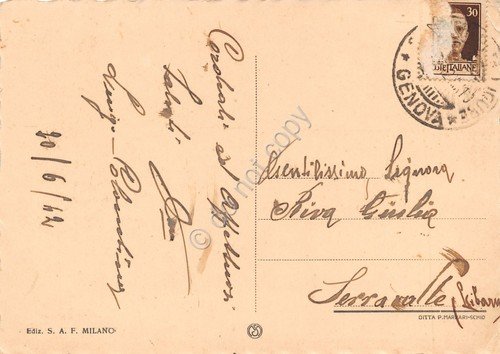 Cordiali ed Affettuosi
Saluti
Luigi
30/6/42
Gentilissima Signora
Riva Giulia
Serravalle (Libarna
30
POSTE ITALIANE
GENOVA
Ediz. S. A. F. MILANO
DITTA P. MARZARI-SCHIO
do not copy